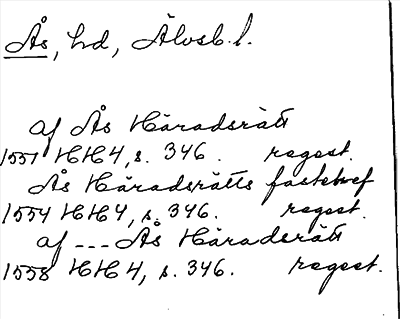 Ås, hd, Älvsb. l.
af Ås Häradsrätt
1551 HH4, s. 346. regest.
Ås Häradsrätts fastebref
1554 HH4, s. 346. regest.
af --- Ås Häradsrätt
1558 HH4, s. 346. regest.